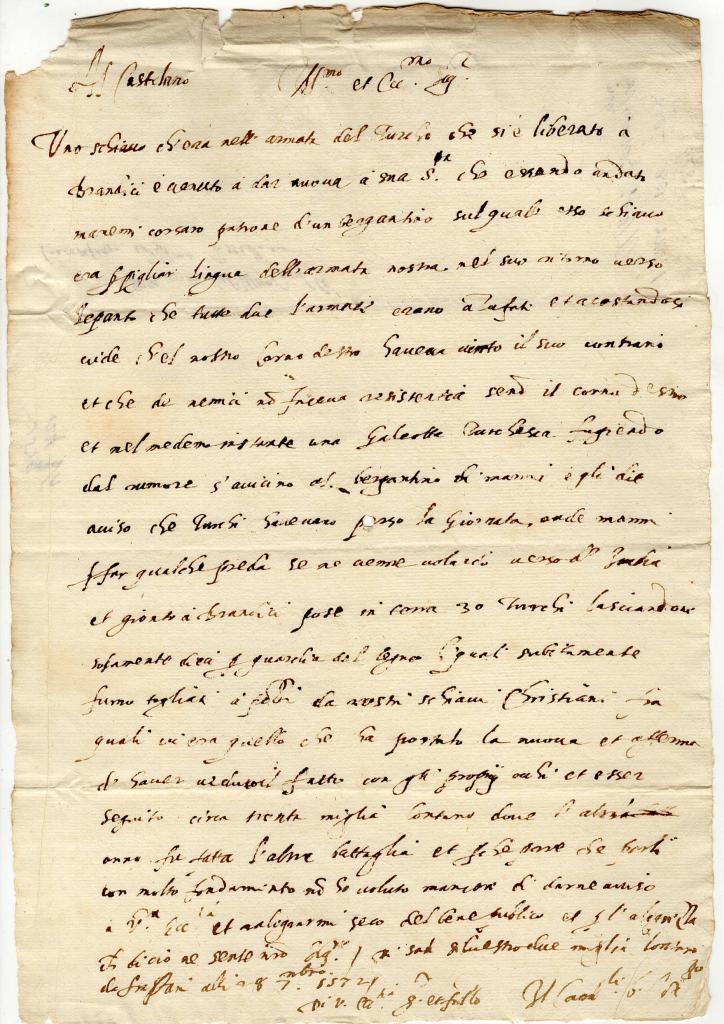 Al Castellano Ill.mo et Ecc.mo Sig.r
Uno schiavo ch'era nell'armata del Turcho che si è liberato à
Brandici è venuto à dar nuova à sua S.tà che essendo andato
mamemi corsaro patrone d'un bergantino sul quale esso schiavo
era p pigliar lingua dell'armata nostra, nel suo ritorno verso
lepanto che tutte due l'armate erano azufate et acostandosi
vide ch'el nostro corno destro haveva vinto il suo contrario
et che de nemici nõ faceva resistentia senõ il corno destro
et nel medemo instante una Galeotta Turchesca fugiendo
dal rumore s'avicino al bergantino di mami e gli die
aviso che Turchi havevano perso la Giornata, onde mamni
p far qualche preda se ne venne volando verso Italia
et gionto à Brandici pose in terra 30 Turchi lasciandone
solamente dieci p guardia del legno li quali subitamente
furno tagliati à pezzi da nostri schiavi Christiani fra
quali vi era quello che ha portato la nuova et afferma
d'haver veduto il fatto con gli proprij ochi et esser
seguito circa trenta miglia lontano dove l'altro
anno fu fata l'altra battaglia et p che pare che parli
con molto fondamento nõ ho voluto mancare di darne aviso
à V. Ecc.tia et ralegrarmi seco del bene publico et p l'alegrezza
ne sente miglia lontano
da Trapani alli 28 1572
Di V. Ecc.tia